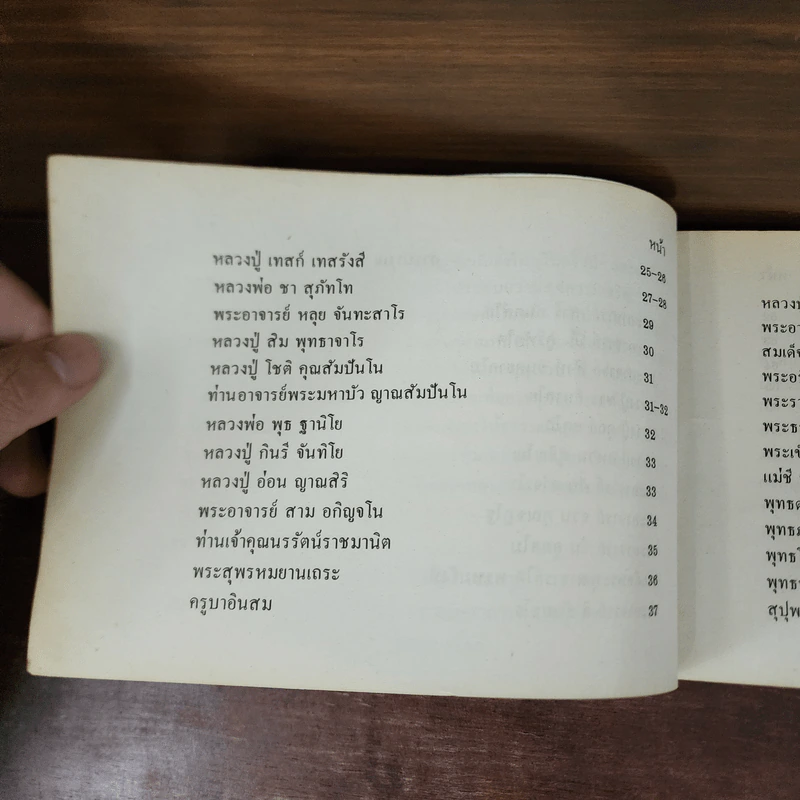 หน้า
หลวงปู่ เทสก์ เทสรังสี 25-26
หลวงพ่อ ชา สุภัทโท 27-28
พระอาจารย์ หลุย จันทะสาโร 29
หลวงปู่ สิม พุทธาจาโร 30
หลวงปู่ โชติ คุณสัมปันโน 31
ท่านอาจารย์พระมหาบัว ญาณสัมปันโน 31-32
หลวงพ่อ พุธ ฐานิโย 32
หลวงปู่ กินรี จันทิโย 33
หลวงปู่ อ่อน ญาณสิริ 33
พระอาจารย์ สาม อกิญจโน 34
ท่านเจ้าคุณนรรัตน์ราชมานิต 35
พระสุพรหมยานเถระ 36
ครูบาอินสม 37
แม่ชี